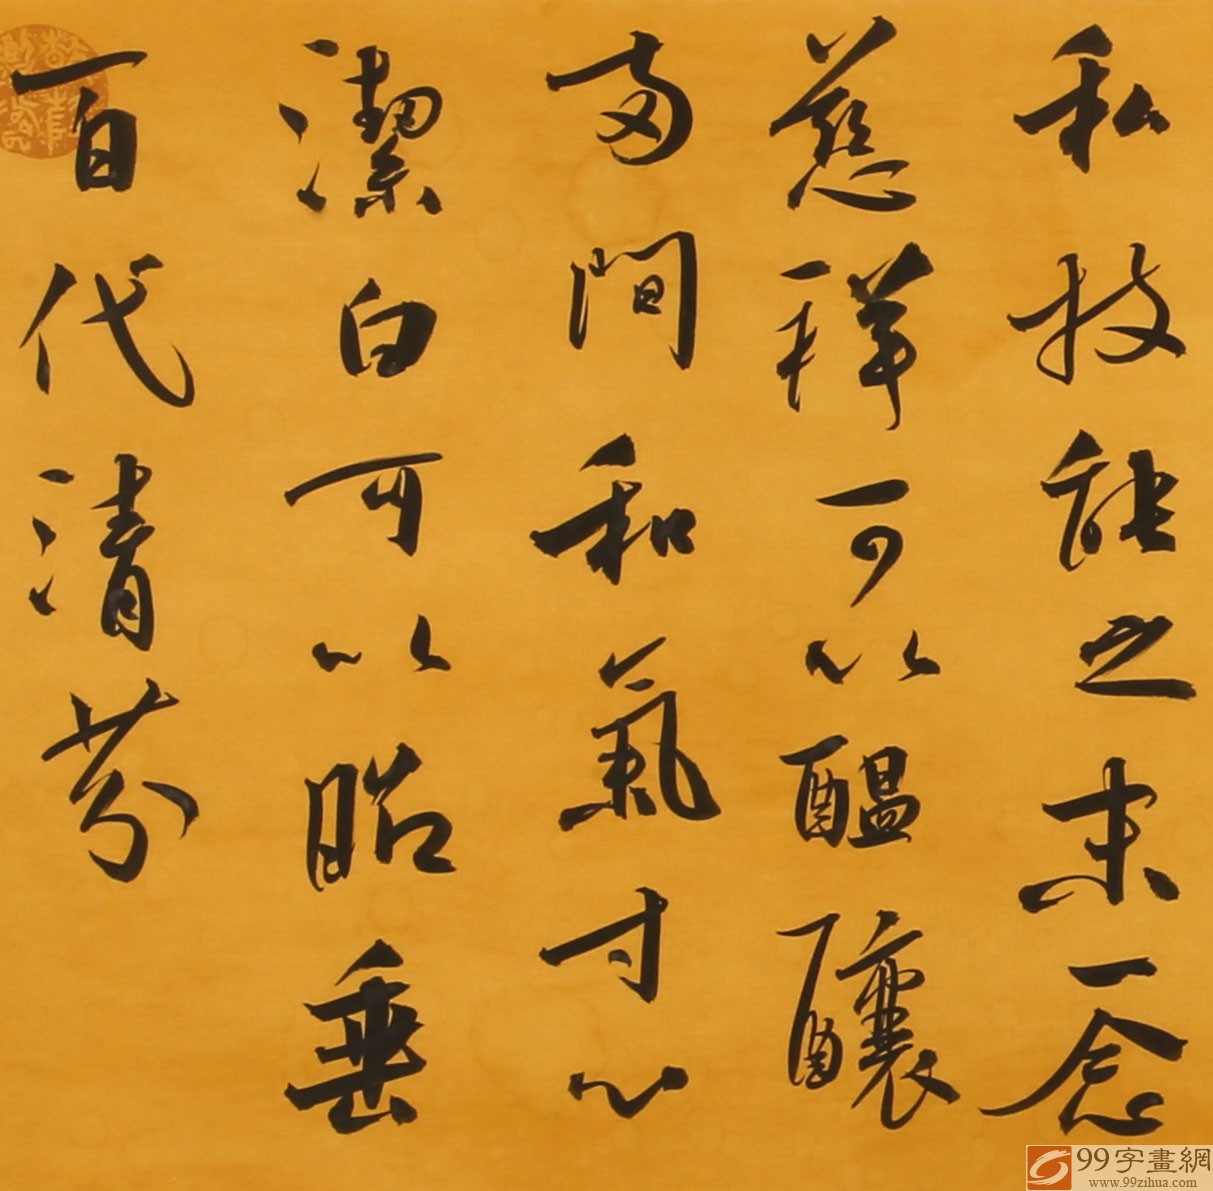 私技能之末一念
慈祥可以醞釀
兩間和氣寸心
潔白可以昭垂
百代清芬
99字畫網
www.99zihua.com